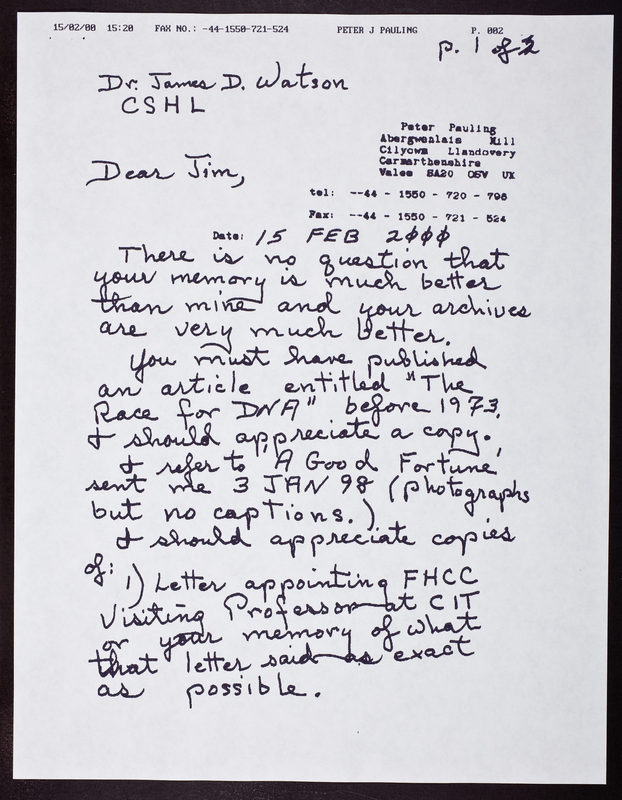 15/02/00 15:20 FAX NO.: -44-1550-721-524 PETER J PAULING P. 002
p. 1 of 2
Dr. James D. Watson
CSHL
Peter Pauling
Abergwenlais Mill
Cilycwm Llandovery
Carmarthenshire
Wales SA20 OSV UK
Dear Jim,
tel: --44 - 1550 - 720 - 798
Fax: --44 - 1550 - 721 - 524
Date: 15 FEB 2000
There is no question that
your memory is much better
than mine and your archives
are very much better.
You must have published
an article entitled "The
Race for DNA" before 1973.
I should appreciate a copy.
I refer to 'A Good Fortune'
sent me 3 JAN 98 (photographs
but no captions.)
I should appreciate copies
of:
1) Letter appointing FHCC
Visiting Professor at CIT
or your memory of what
that letter said as exact
as possible.